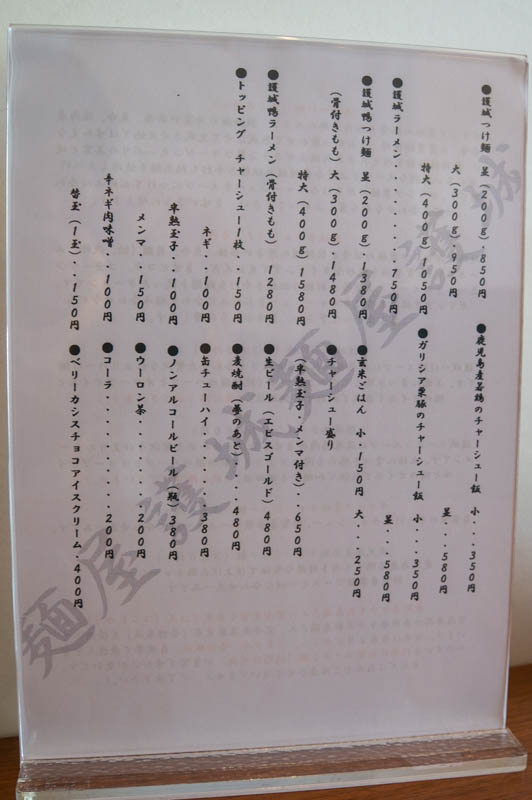 ●護城つけ麺 並(200g)・850円
大(300g)950円
特大(400g)1050円
●護城ラーメン・・・・・・・・・750円
●護城鴨つけ麺 並(200g)・1380円
(骨付きもも)大(300g)・1480円
特大(400g)1580円
●護城鴨ラーメン(骨付きもも) 1280円
●トッピング チャーシュー1枚・・150円
ネギ・・・100円
半熟玉子・・100円
メンマ・・150円
辛ネギ肉味噌・・100円
替玉(1玉)・・150円
●鹿児島産若鶏のチャーシュー飯 小・・・350円
並・・・580円
●ガリシア栗豚のチャーシュー飯 小・・・350円
並・・・580円
●玄米ごはん 小・150円
大・・・250円
●チャーシュー盛り
(半熟玉子・メンマ付き)・・・650円
●生ビール(エビスゴールド)480円
●麦焼酎(夢のあと)・・・・480円
●缶チューハイ・・・・・・・380円
●ノンアルコールビール(瓶)380円
●ウーロン茶・・・・・・・・200円
●コーラ・・・・・・・・・・200円
●ベリーカシスチョコアイスクリーム・400円
麺屋護城麺屋護城